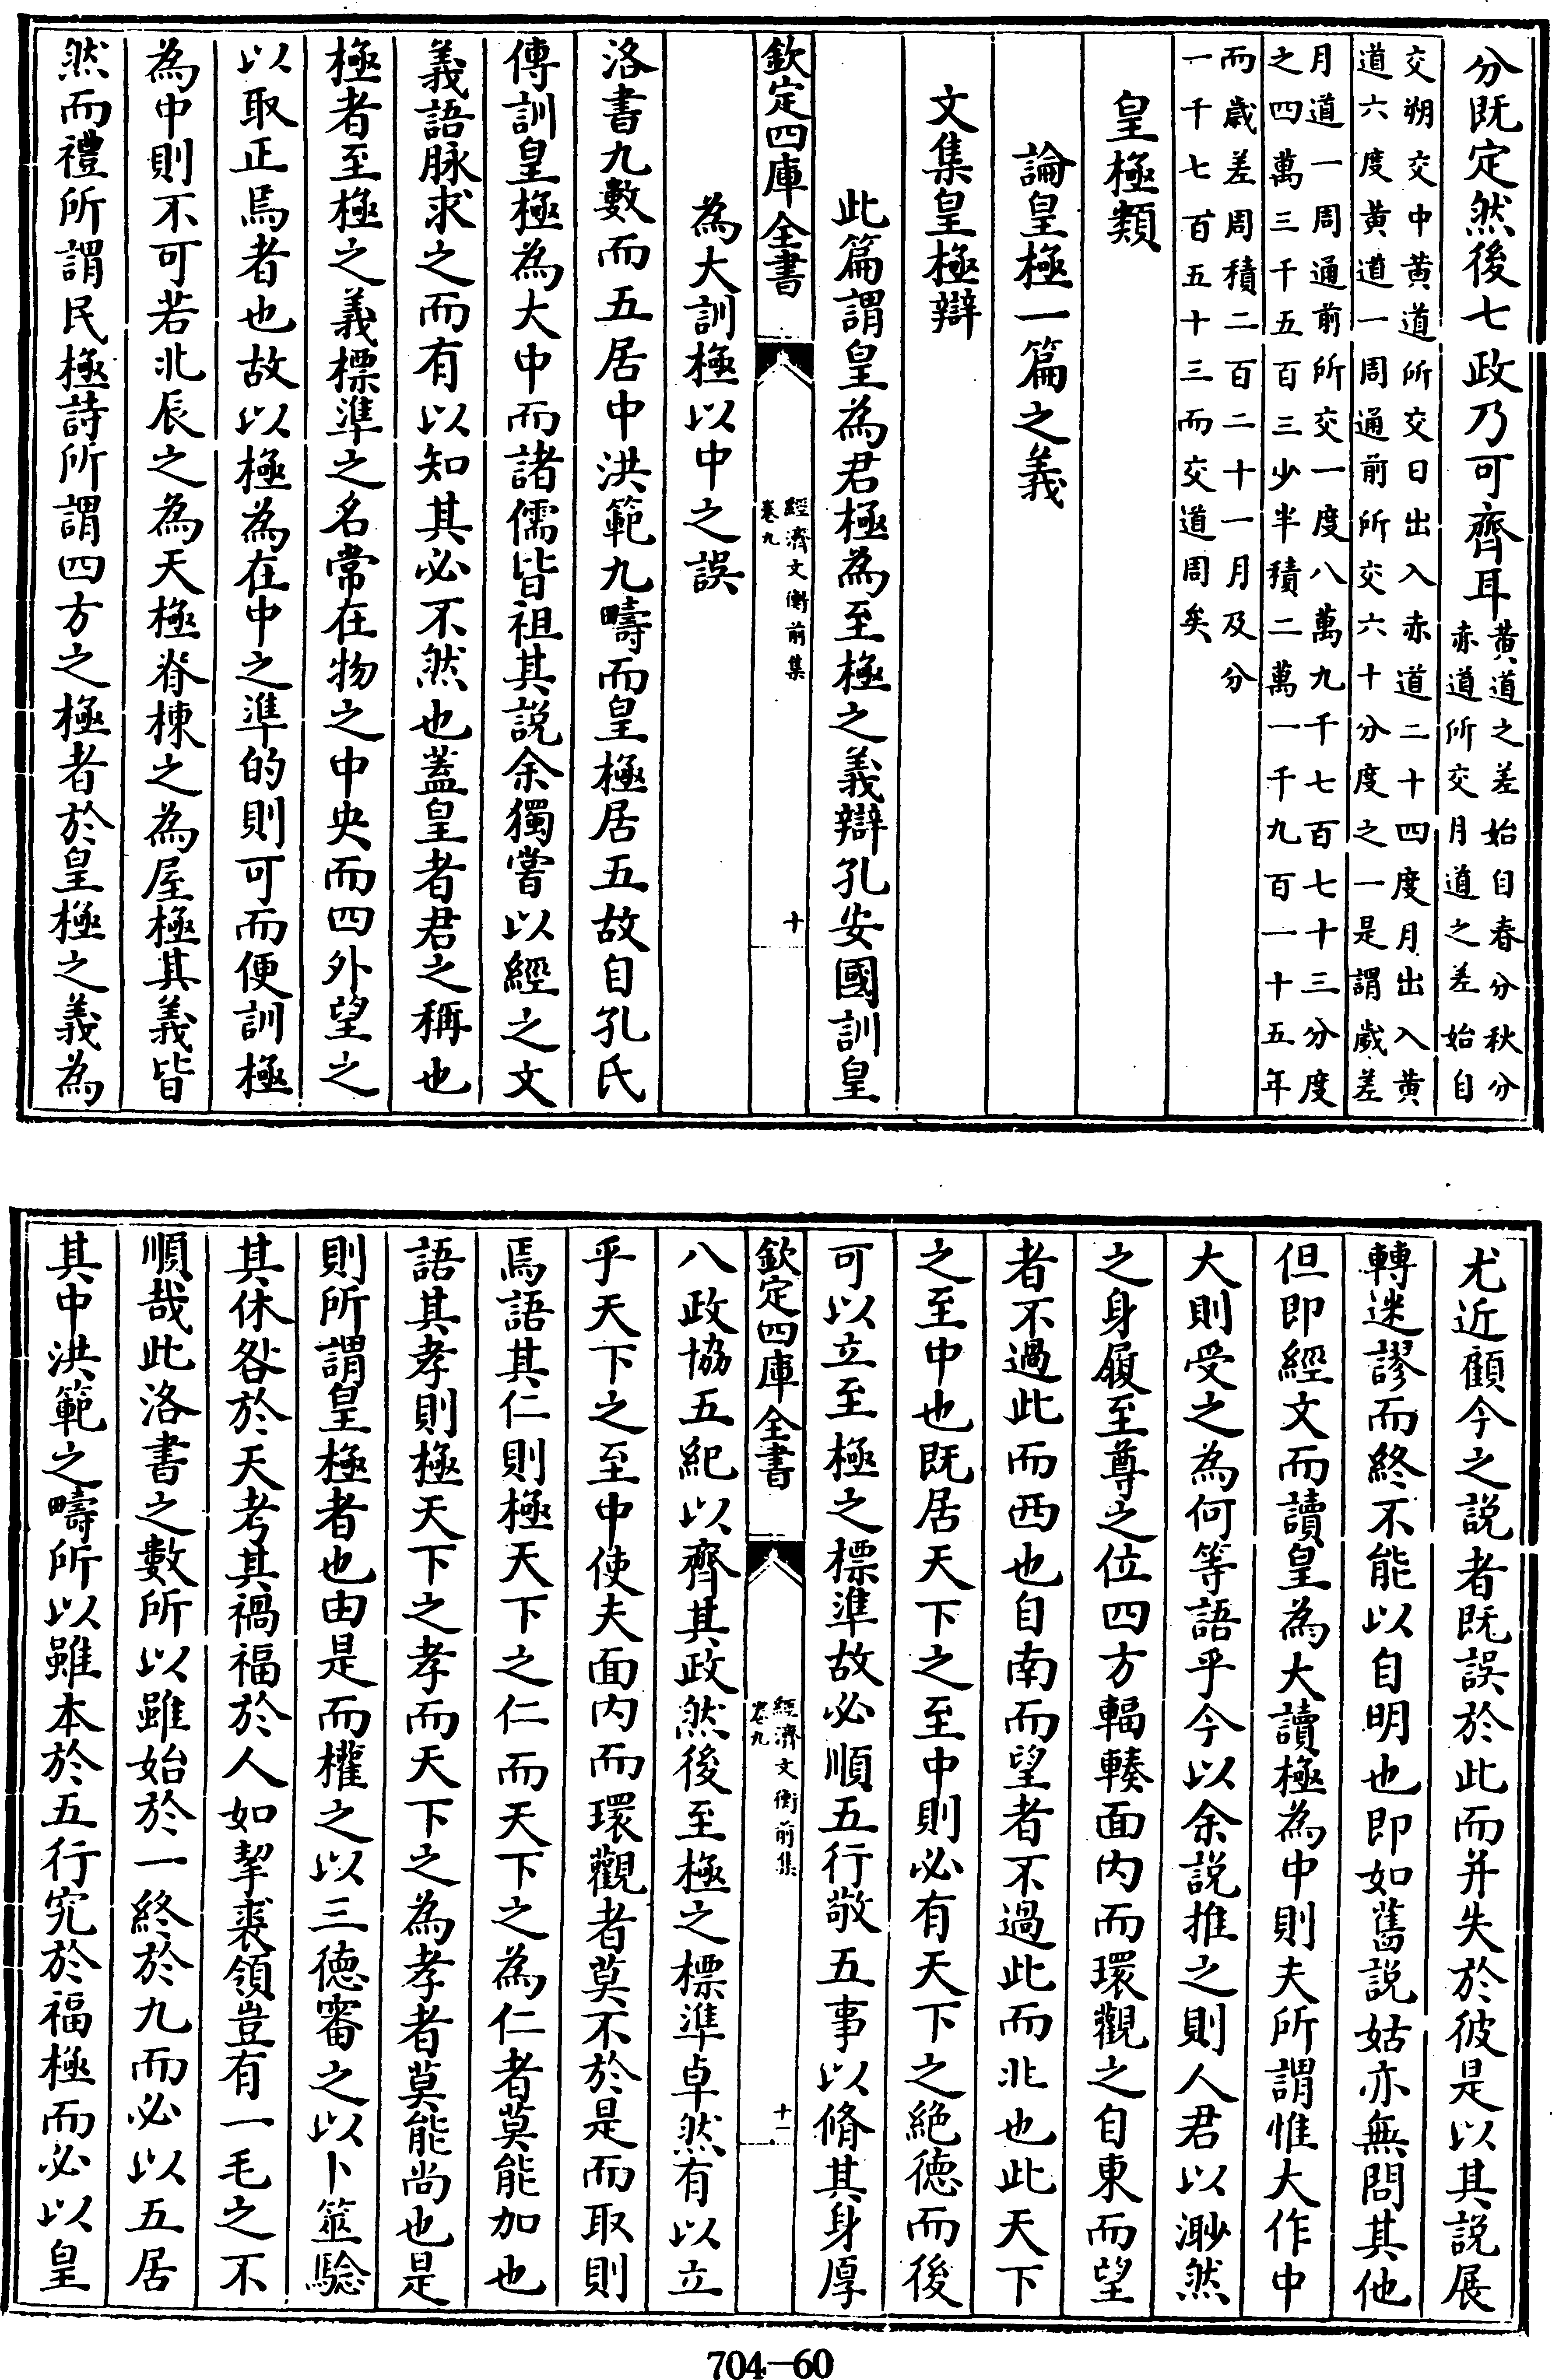 分既定然後七政乃可齊耳黄道之差始自春分秋分
赤道所交月道之差始自
交朔交中黄道所交日出入赤道二十四度月出入黄
道六度黄道一周通前所交六十分度之一是謂歲差
月道一周通前所交一度八萬九千七百七十三分度
之四萬三千五百三少半積二萬一千九百一十五年
而歲差周積二百二十一月及分
一千七百五十三而交道周矣
皇極類
論皇極一篇之義
文集皇極辯
此篇謂皇為君極為至極之義辯孔安國訓皇
欽定四庫全書
經濟文衡前集
卷九
十
為大訓極以中之誤
洛書九數而五居中洪範九疇而皇極居五故自孔氏
傳訓皇極為大中而諸儒皆祖其説余獨嘗以經之文
義語脉求之而有以知其必不然也蓋皇者君之稱也
極者至極之義標準之名常在物之中央而四外望之
以取正焉者也故以極為在中之準的則可而便訓極
為中則不可若北辰之為天極脊棟之為屋極其義皆
然而禮所謂民極詩所謂四方之極者於皇極之義為
尤近顧今之説者既誤於此而并失於彼是以其説展
轉迷謬而終不能以自明也即如舊説姑亦無問其他
但即經文而讀皇為大讀極為中則夫所謂惟大作中
大則受之為何等語乎今以余説推之則人君以渺然
之身履至尊之位四方輻輳面内而環觀之自東而望
者不過此而西也自南而望者不過此而北也此天下
之至中也既居天下之至中則必有天下之絶德而後
可以立至極之標準故必順五行敬五事以脩其身厚
欽定四庫全書
經濟文衡前集
卷九
十一
八政協五紀以齊其政然後至極之標準卓然有以立
乎天下之至中使夫面内而環觀者莫不於是而取則
焉語其仁則極天下之仁而天下之為仁者莫能加也
語其孝則極天下之孝而天下之為孝者莫能尚也是
則所謂皇極者也由是而權之以三德審之以卜筮驗
其休咎於天考其禍福於人如挈裘領豈有一毛之不
順哉此洛書之數所以雖始於一終於九而必以五居
其中洪範之疇所以雖本於五行究於福極而必以皇
704-60